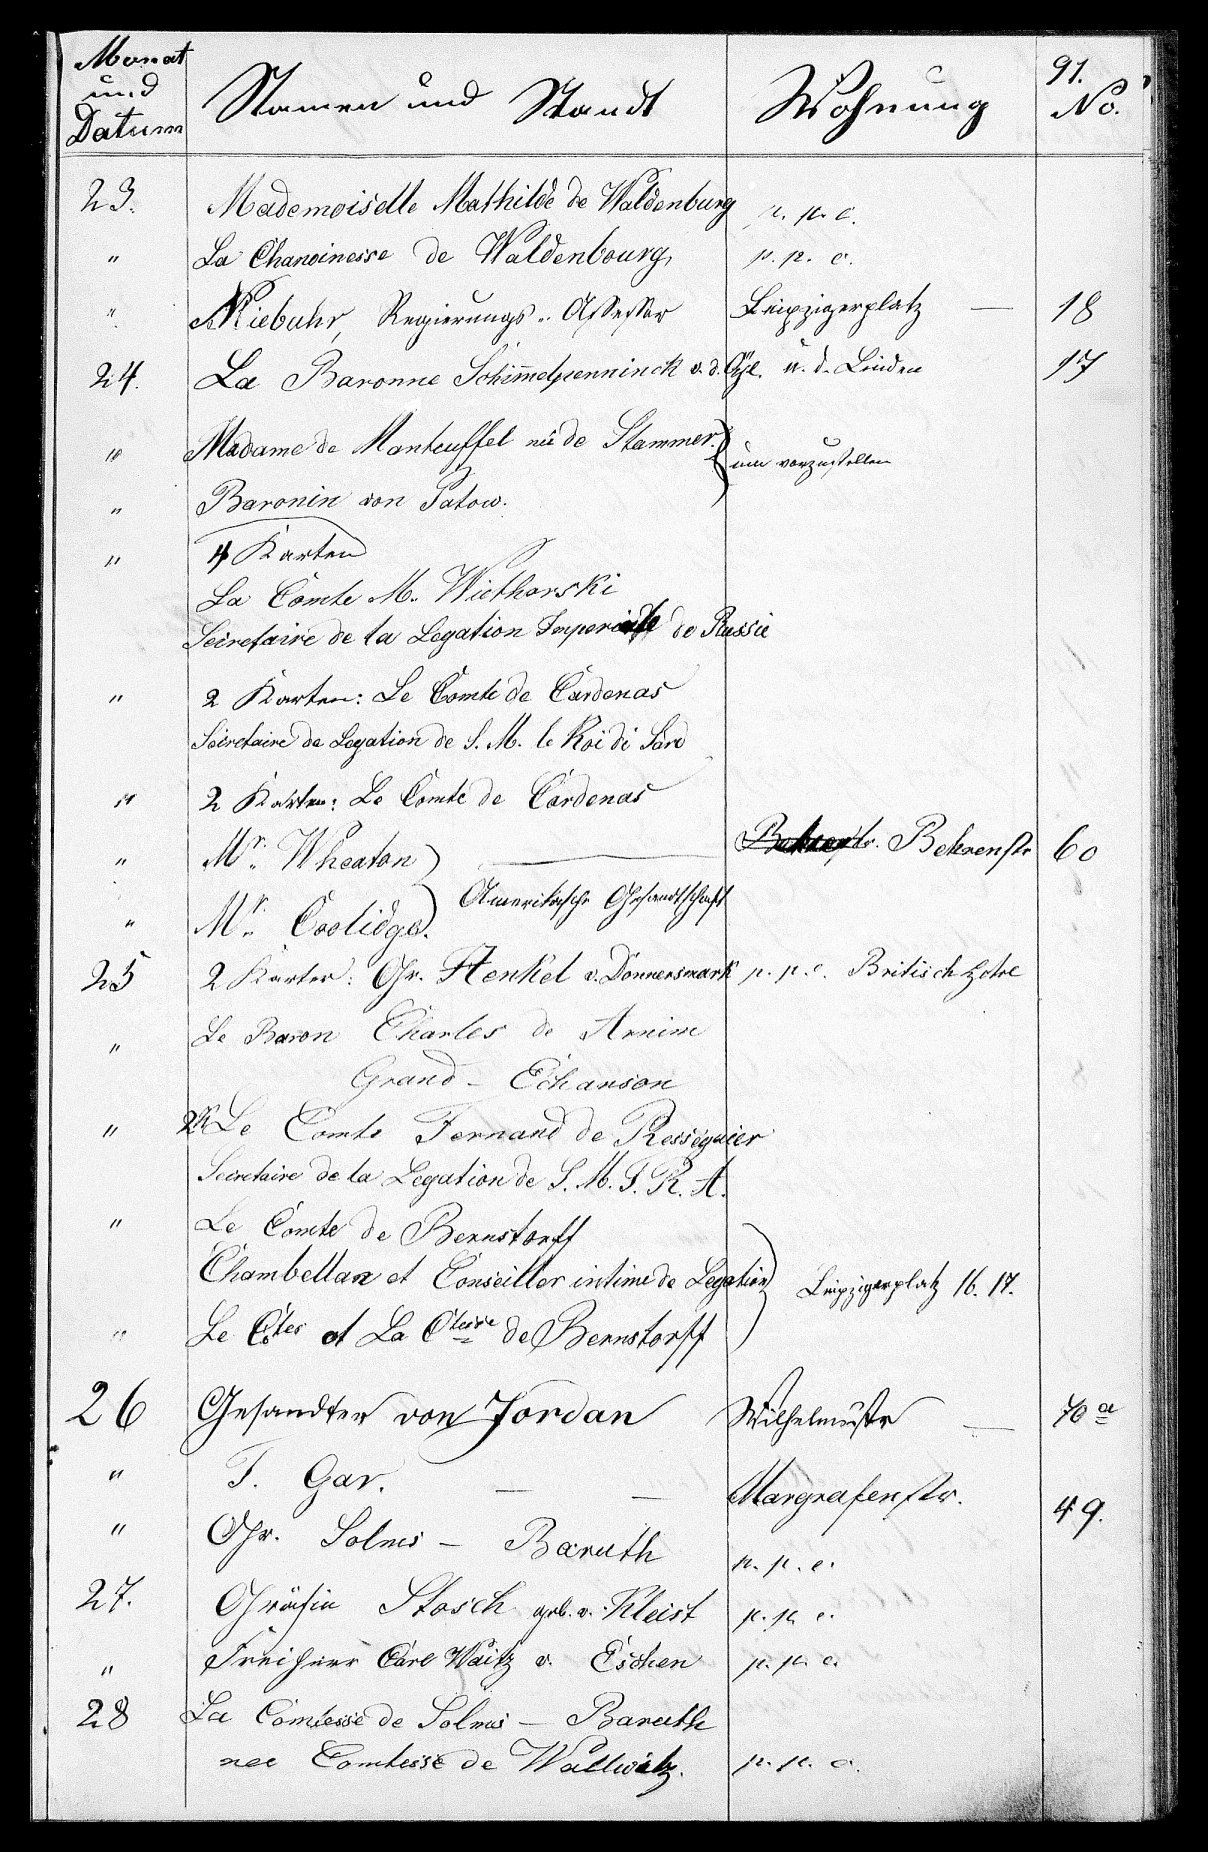 91.
Monat und Datum Namen und Standt Wohnung No.
23. Mademoiselle Mathilde de Waldenburg p. p. c.
" La Chanoinesse de Waldenbourg, p. p. c.
" Niebuhr, Regierungs-Assessor Leipzigerplatz — 18
24. La Baronne Schimmelpenninck v. d. Oye. u. d. Linden 17
" Madame de Manteuffel née de Stammer.
um vorzustellen
" Baronin von Patow.
" 4 Karten
La Comte M. Wielhorski
Secretaire de la Legation Imperiale de Russie
" 2 Karten: Le Comte de Cardenas
Secretaire de Legation de S. M. le Roi de Sard
" 2 Karten: Le Comte de Cardenas
" Mr. Wheaton — Behrenstr. Behrenstr 60
Amerikasche Gesandtschaft
" Mr. Coolidge.
25 2 Karten: Gr. Henkel v. Donnersmark p. p. c. Britisch Hotel
" Le Baron Charles de Arnim
Grand - Echanson
" 2K Le Comte Fernand de Rességuier
Secretaire de la Legation de S. M. I. R. A.
" Le Comte de Bernstorff
Chambellan et Conseiller intime de Legation
Leipzigerplatz 16. 17.
" Le Ctes et La Ctesse de Bernstorff
26 Gesandter von Jordan Wilhelmstr — 70 a
" T. Gar. — — Margrafenstr. 49.
" Gr. Solms - Baruth p. p. c.
27. Gräfin Stosch geb. v. Kleist p. p. c.
" Freiherr Carl Waitz v. Eschen p. p. c.
28 La Comtesse de Solms - Baruth
nee Comtesse de Wallwitz. p. p. c.